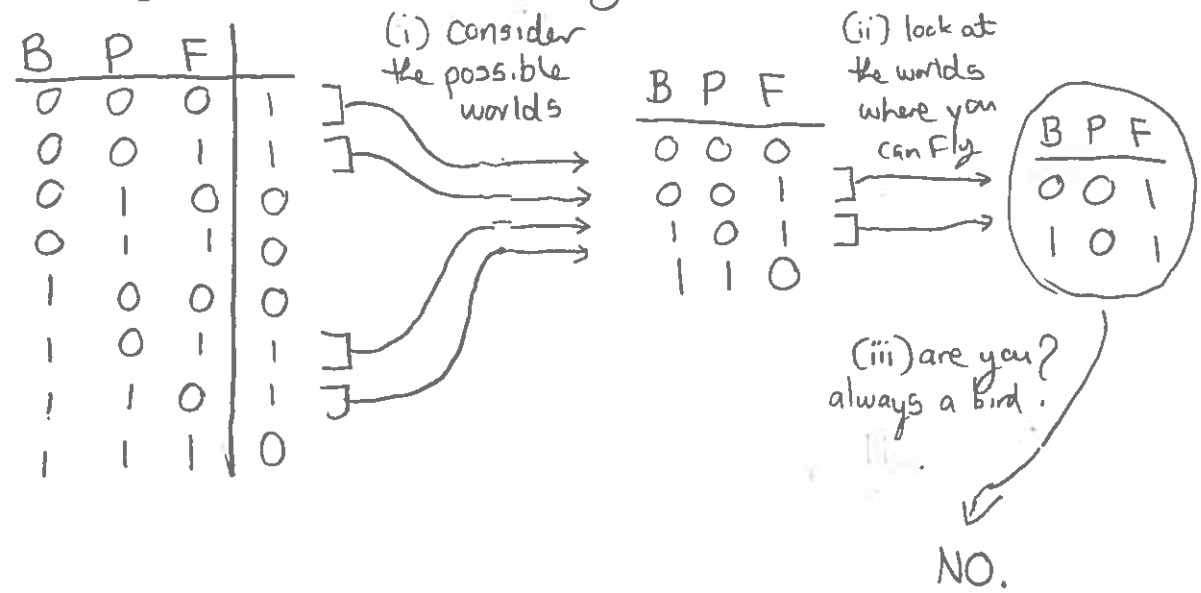 B P F
0 0 0 1
0 0 1 1
0 1 0 0
0 1 1 0
1 0 0 0
1 0 1 1
1 1 0 1
1 1 1 0
(i) consider
the possible
worlds
B P F
0 0 0
0 0 1
1 0 1
1 1 0
(ii) look at
the worlds
where you
can Fly
B P F
0 0 1
1 0 1
(iii) are you?
always a bird.
NO.